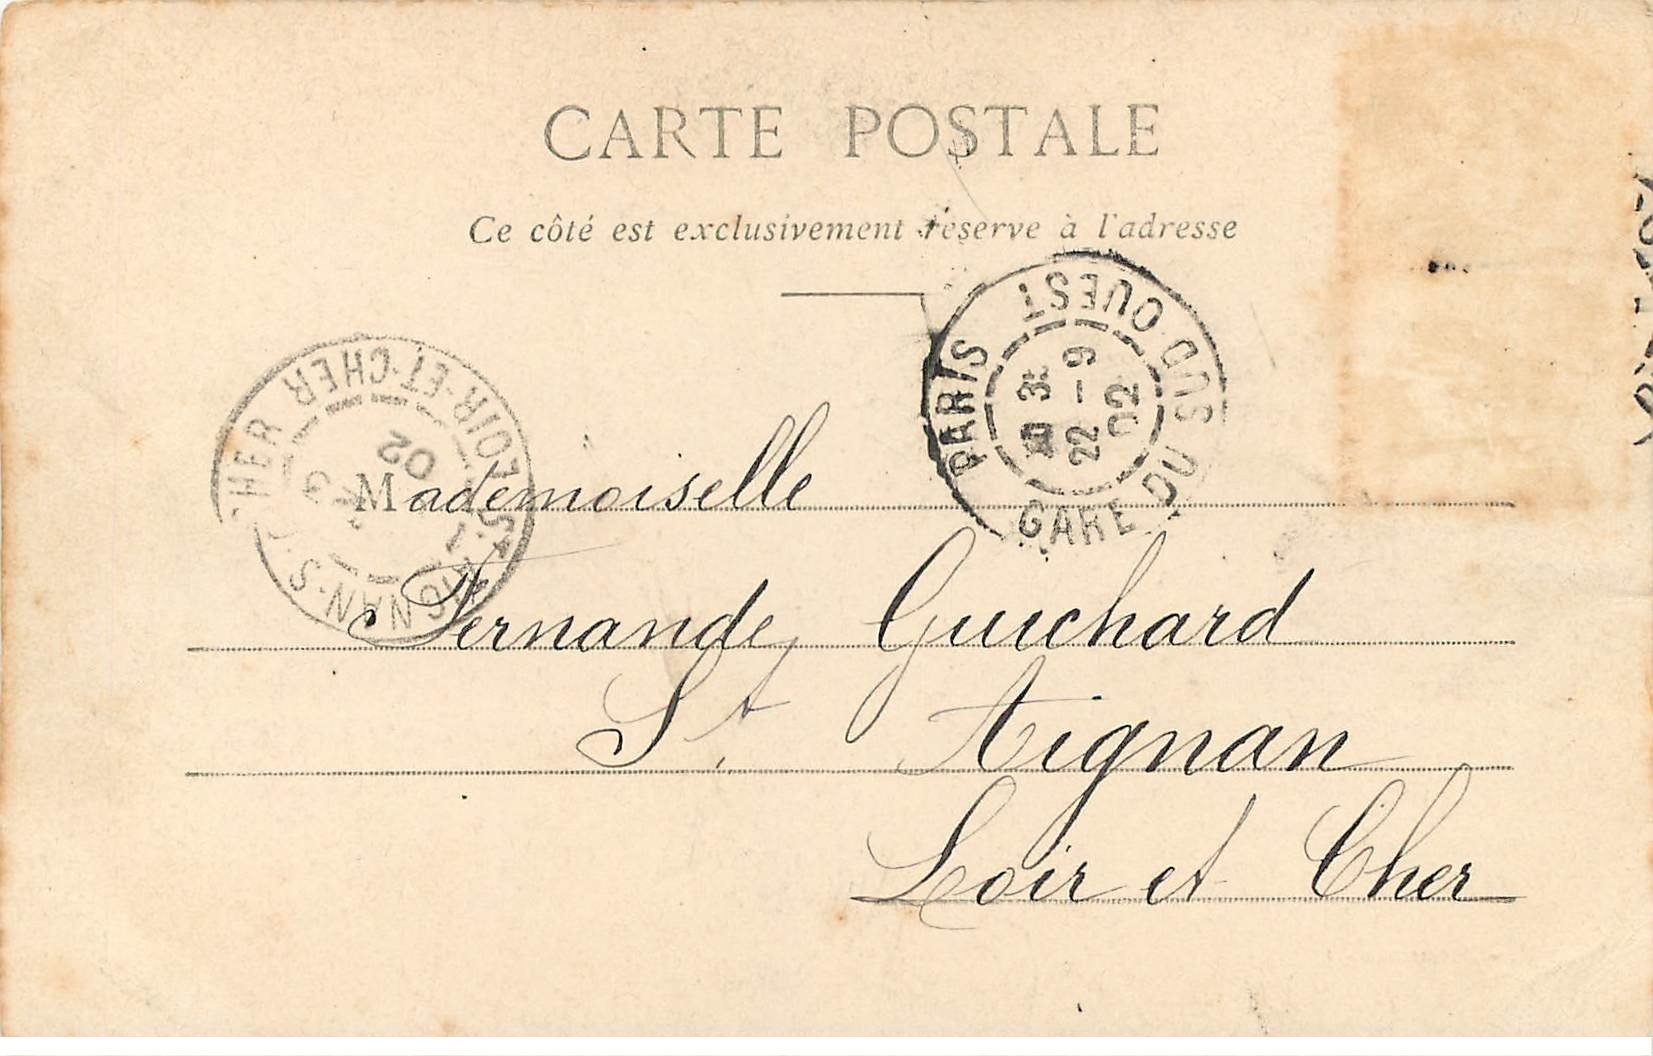 CARTE POSTALE
Ce côté est exclusivement réservé à l'adresse
PARIS GARE DU SUD-OUEST
22 - 9
02
LOIR-ET-CHER
02
Mademoiselle
Fernande Guichard
St. Aignan
Loir et Cher